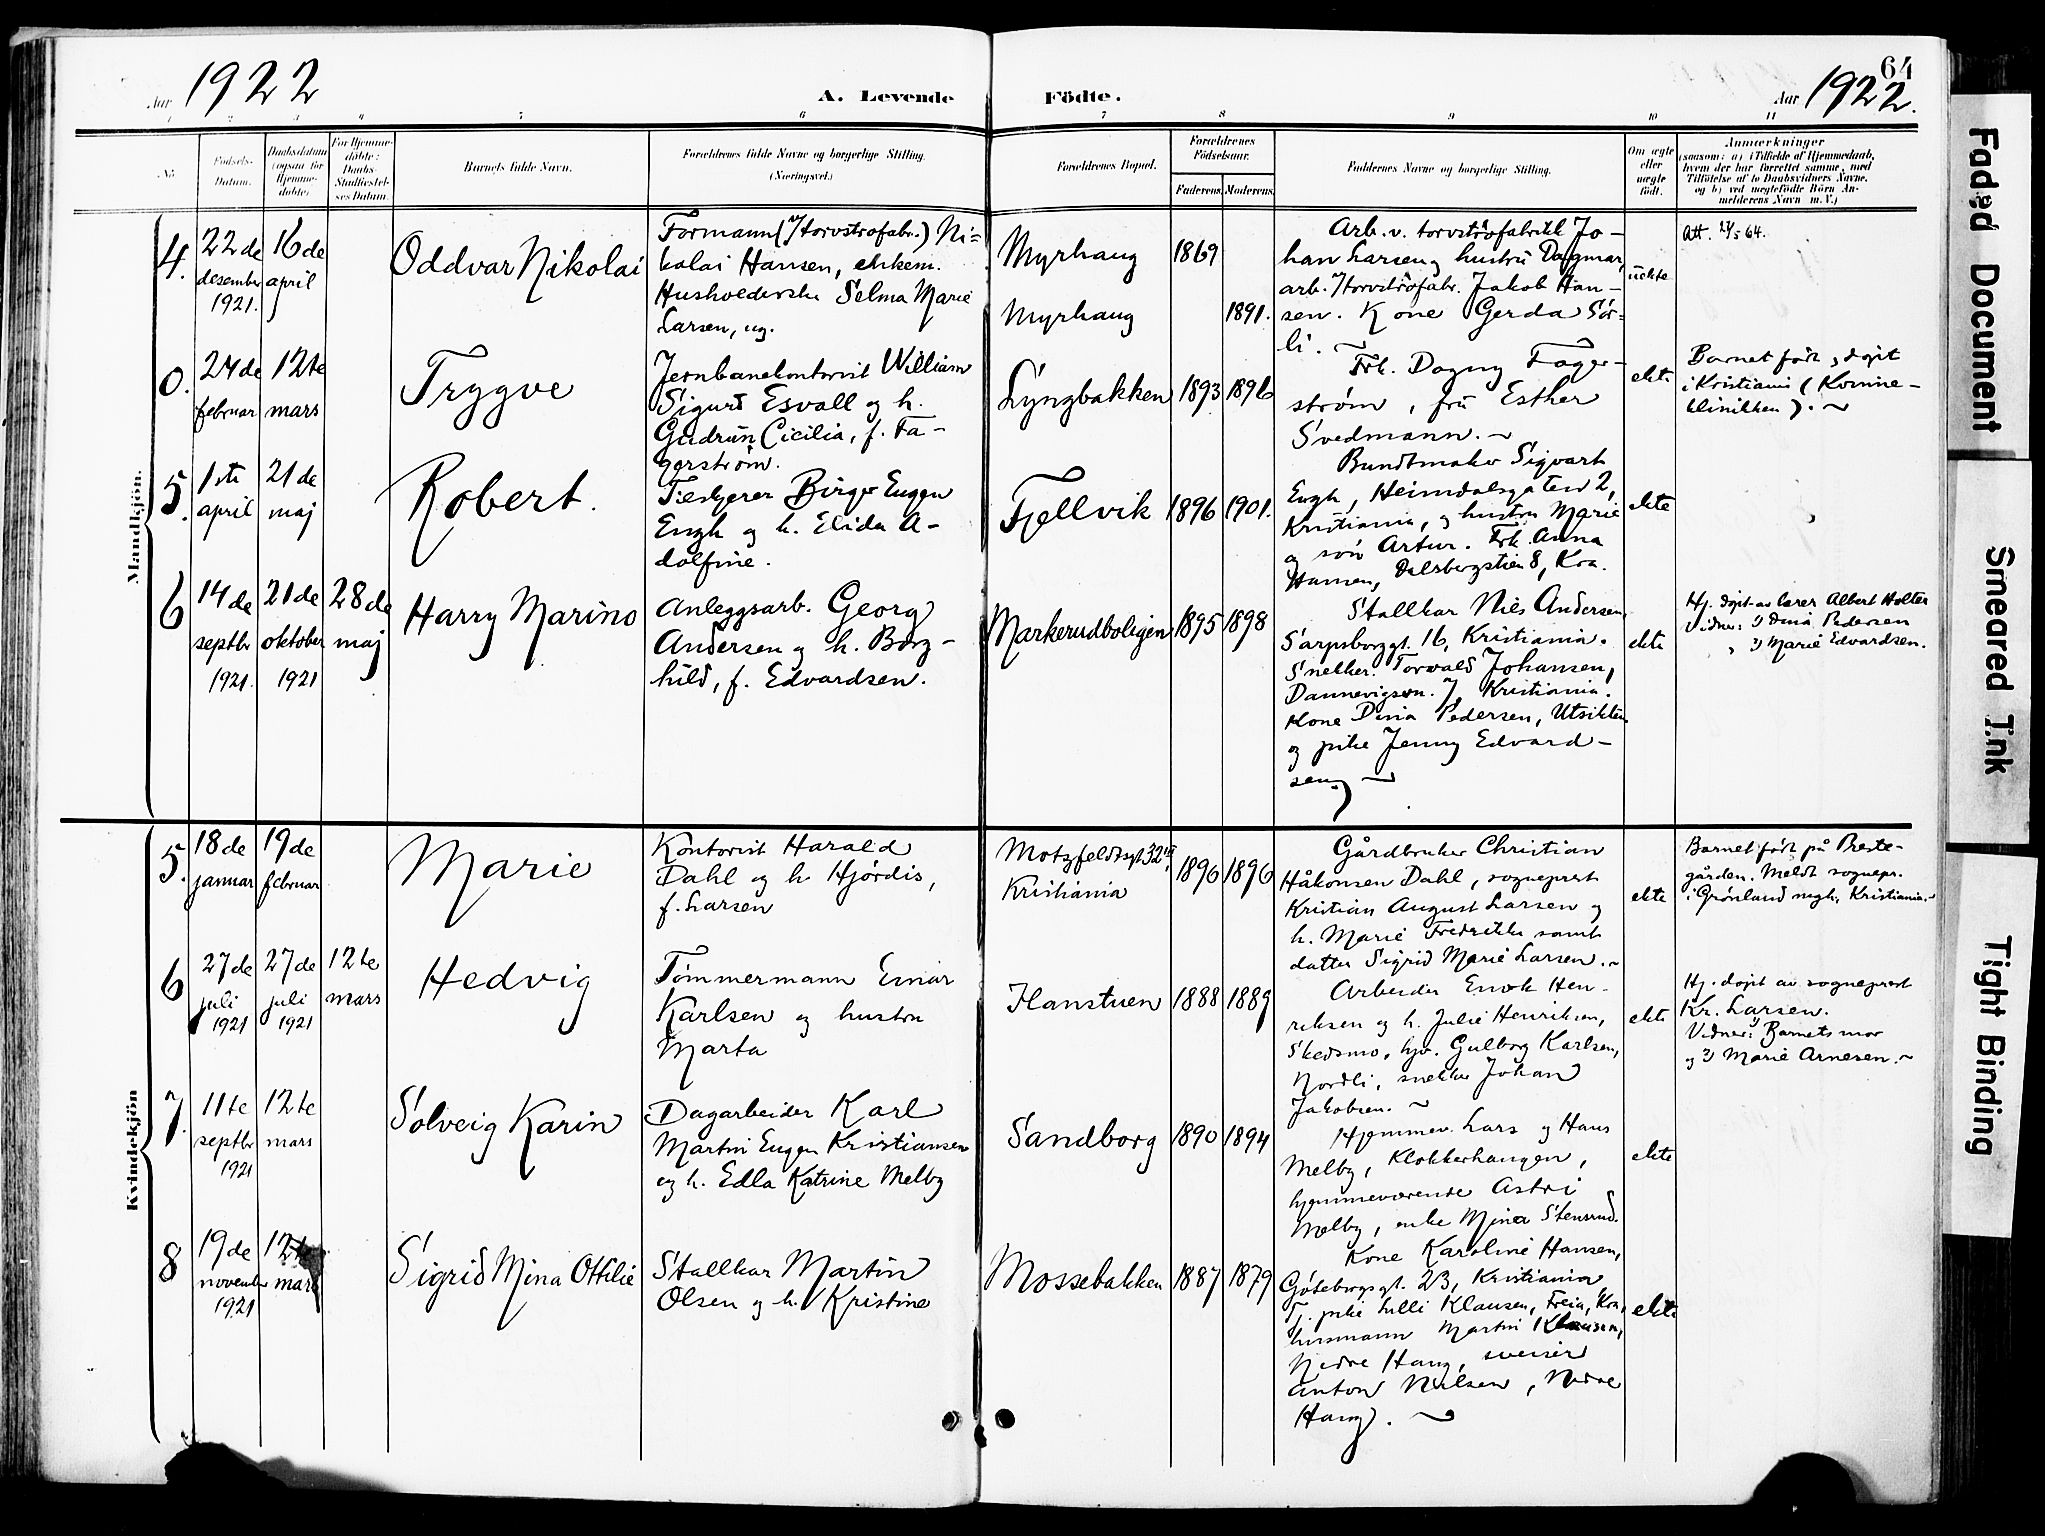 Aar 1922
A. Levende
Födte.
64
Aar 1922.
1 2 3 4 5 6 7 8 9 10 11
No
Födsels-
Datum.
Daabsdatum
(ogsaa for
Hjemme-
döbte)
For Hjemme-
döbte:
Daabs-
Stadfæstel-
ses Datum.
Barnets fulde Navn.
Forældrenes fulde Navne og borgerlige Stilling.
(Næringsvei.)
Forældrenes Bopæl.
Forældrenes
Födselsaar.
Faderens.
Moderens.
Faddernes Navne og borgerlige Stilling.
Om ægte
eller
uægte
födt.
Anmærkninger
(saasom: a) i Tilfælde af Hjemmedaab,
hvem der har forrettet samme, med
Tilföielse af to Daabsvidners Navne,
og b) ved uægtefödte Börn An-
melderens Navn m. V.)
Mandkjön.
4.
22de
desember
1921.
16de
april
Oddvar Nikolai
Formann (v/torvstrøfabr.) Ni-
kolai Hansen, enkem.
Husholderske Selma Marie
Larsen, ug.
Myrhaug
Myrhaug
1869
1891.
Arb. v. torvstrøfabrikk Jo-
han Larsen og hustru Dagmar,
arb. v/torvstrøfabr. Jakob Han-
sen. Kone Gerda Sör-
li.
uekte
Att.
0.
24de
februar
12te
mars
Trygve
Jernbanekontorist William
Sigurd Esvall og h.
Gudrun Cicilia, f. Fa-
gerström.
Lyngbakken
1893
1896
Frk. Dagny Fager-
ström, fru Esther
Svedmann.
ekte
Barnet födt og döpt
i Kristiania (Kvinne-
klinikken).
5.
1ste
april
21de
maj
Robert.
Birger Eugen
Engh og h. Elida A-
dolfine.
Fjellvik
1896
1901.
Bundtmaker Sigvart
Engh, Heimdalsgaten 2,
Kristiania, og hustru Marie
og sön Artur. Frk. Anna
Hansen, Dalsbergstien 8, Kra.
ekte
6
14de
septbr
1921.
21de
oktober
1921
28de
maj
Harry Marino
Anleggsarb. Georg
Andersen og h. Borg-
hild, f. Edvardsen.
Markerudboligen
1895
1898
Stallkar Nils Andersen,
Sarpsborggt. 16, Kristiania.
Snekker Torvald Johansen,
Dannevigsvn. 7, Kristiania.
Kone Dina Pedersen, Utsikten
og pike Jenny Edvard-
sen.
ekte
Hj. döpt av lærer Albert Holter
Vidner: 1) Dina Pedersen
2) Marie Edvardsen.
Kvindekjön
5.
18de
januar
19de
februar
Marie
Kontorist Harald
Dahl og h. Hjördis,
f. Larsen
Motzfeldtsgt 32
Kristiania
1896
1896
Gårdbruker Christian
Håkonsen Dahl, sogneprest
Kristian August Larsen og
h. Marie Fredrikke samt
datter Sigrid Marie Larsen.
ekte
Barnet födt på Preste-
gården. Meldt sognepr.
i Grönland mgh., Kristiania.
6
27de
juli
1921
27de
juli
1921
12te
mars
Hedvig
Tömmermann Einar
Karlsen og hustru
Marta
Hanstuen
1888
1889
Arbeider Enok Hen-
riksen og h. Julie Henriksen,
Skedsmo, hjv. Gulborg Karlsen,
Nordli, snekker Johan
Jakobsen.
ekte
Hj. döpt av sogneprest
Kr. Larsen.
Vidner: 1) Barnets mor
og 2) Marie Arnesen.
7.
11te
septbr
1921
12te
mars
Solveig Karin
Dagarbeider Karl
Martin Eugen Kristiansen
og h. Edla Katrine Melby
Sandborg
1890
1894
Hjemmev. Lars og Hans
Melby, Klokkerhaugen,
hjemmeværende Astri
Melby, enke Mina Stensrud.
ekte
8
19de
november
1921
12te
mars
Sigrid Mina Ottilie
Stallkar Martin
Olsen og h. Kristine
Mossebakken
1887
1879
Kone Karoline Hansen,
Göteborggt. 23, Kristiania,
T. pike Lulli Klausen, Freia, Kra,
husmann Martin Klausen,
Nedre Haug, sveiser
Anton Nilsen, Nedre
Haug.
ekte
Faded Document
Smeared Ink
Tight Binding